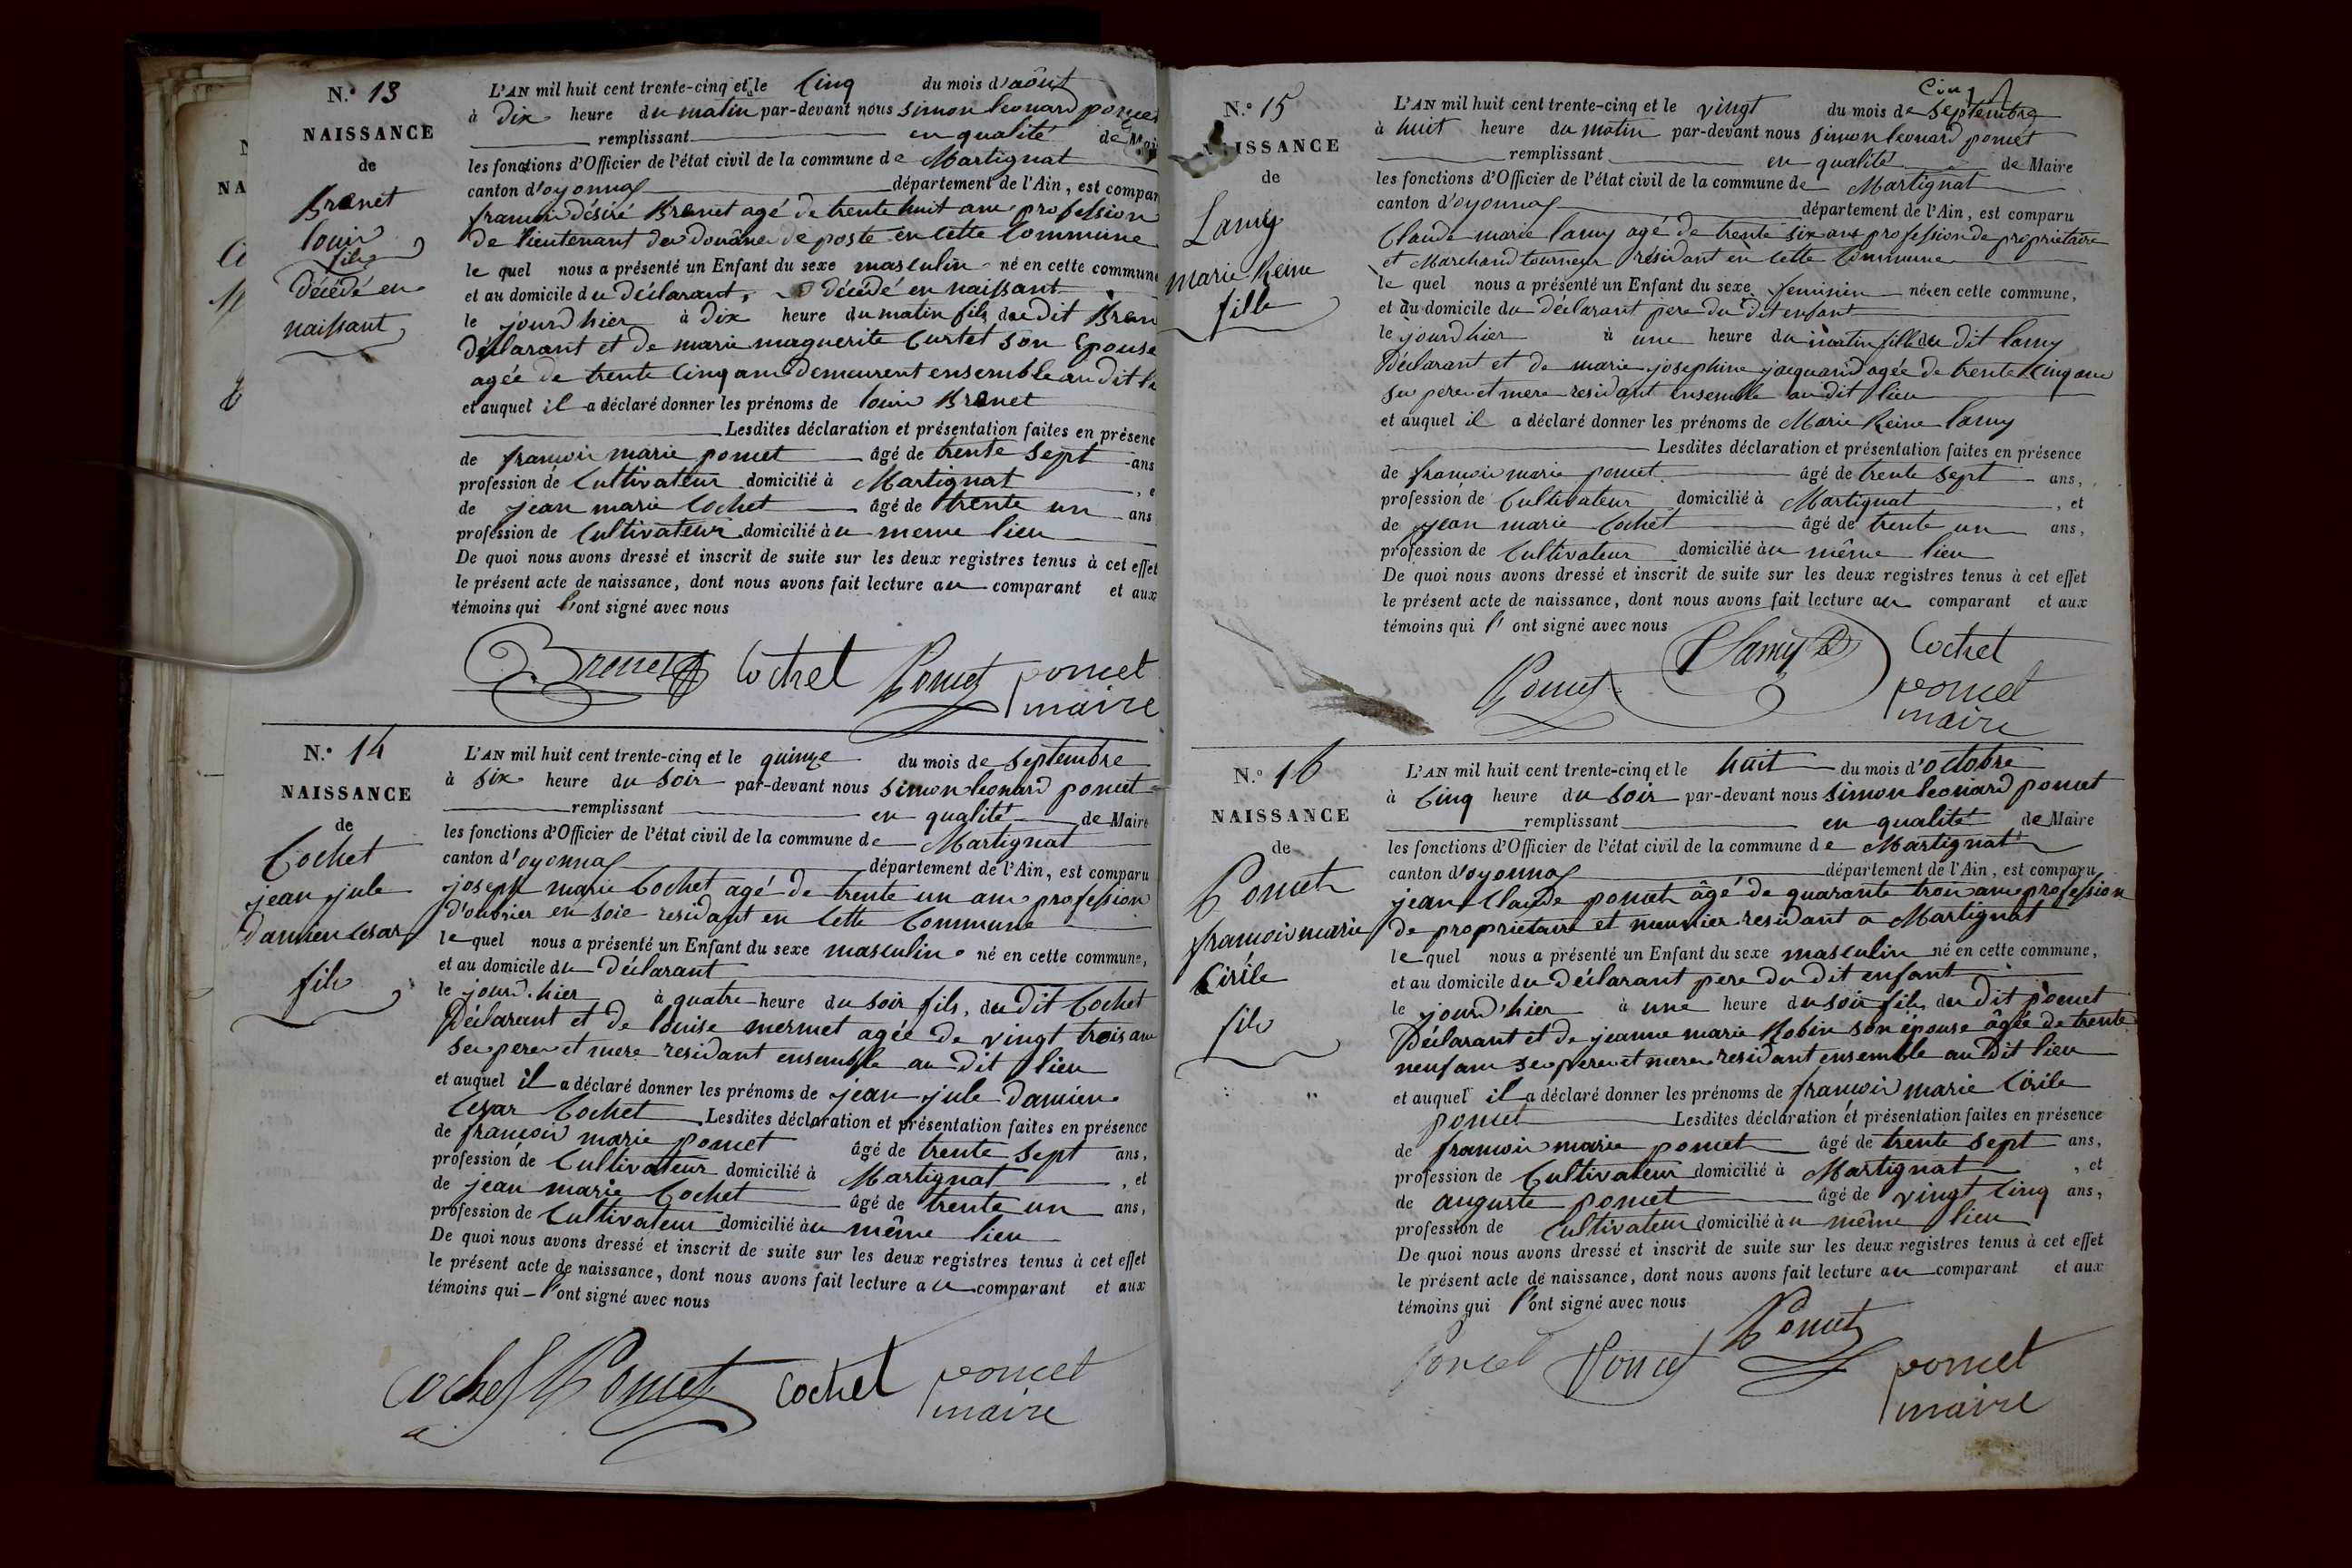 N.o 13
NAISSANCE
de
Brenet
louis
fils
décédé en
naissant
L'AN mil huit cent trente-cinq et le cinq du mois d'août
à dix heure du matin par-devant nous simon leonard poncet
remplissant en qualité de Mai
les fonctions d'Officier de l'état civil de la commune de Martignat
canton d'oyonnax département de l'Ain, est compar
francois désiré Brenet agé de trente huit ans profession
de lieutenant des douânes de poste en cette commune
le quel nous a présenté un Enfant du sexe masculin né en cette commune
et au domicile du déclarant, décédé en naissant
le jourd hier à dix heure du matin fils du dit Bren
déclarant et de marie maguerite Curtet son Epouse
agée de trente cinq ans demeurent ensemble au dit li
et auquel il a déclaré donner les prénoms de louis Brenet
Lesdites déclaration et présentation faites en présenc
de francois marie poncet âgé de trente sept ans
profession de cultivateur domicilié à Martignat, e
de jean marie Cochet âgé de trente un ans
profession de cultivateur domicilié au meme lieu
De quoi nous avons dressé et inscrit de suite sur les deux registres tenus à cet effet
le présent acte de naissance, dont nous avons fait lecture au comparant et aux
témoins qui l'ont signé avec nous
Brenet Cochet Poncet poncet
maire
N.o 14
NAISSANCE
de
Cochet
jean jule
Damien cesar
fils
L'AN mil huit cent trente-cinq et le quinze du mois de septembre
à six heure du soir par-devant nous simon leonard poncet
remplissant en qualité de Maire
les fonctions d'Officier de l'état civil de la commune de Martignat
canton d'oyonnax département de l'Ain, est comparu
joseph marie Cochet agé de trente un ans profession
d'ouvrier en soie residant en cette commune
le quel nous a présenté un Enfant du sexe masculin né en cette commune,
et au domicile du déclarant
le jourd'hier à quatre heure du soir fils, du dit Cochet
Déclarant et de louise mermet agée de vingt trois ans
ses pere et mere residant ensemble au dit lieu
et auquel il a déclaré donner les prénoms de jean jule Damien
Cesar Cochet Lesdites déclaration et présentation faites en présence
de francois marie poncet âgé de trente sept ans,
profession de cultivateur domicilié à Martignat, et
de jean marie Cochet âgé de trente un ans,
profession de cultivateur domicilié au même lieu
De quoi nous avons dressé et inscrit de suite sur les deux registres tenus à cet effet
le présent acte de naissance, dont nous avons fait lecture au comparant et aux
témoins qui l'ont signé avec nous
Cochet Poncet Cochet poncet
maire
N.o 15
NAISSANCE
de
Lamy
marie Reine
fille
L'AN mil huit cent trente-cinq et le vingt cinq du mois de septembre
à huit heure du matin par-devant nous simon leonard poncet
remplissant en qualité de Maire
les fonctions d'Officier de l'état civil de la commune de Martignat
canton d'oyonnax département de l'Ain, est comparu
Claude marie lamy agé de trente six ans profession de propriétaire
et Marchand tourneur résidant en cette commune
le quel nous a présenté un Enfant du sexe feminin née en cette commune,
et du domicile du déclarant pere du dit enfant
le jourd hier à une heure du matin fille du dit lamy
Déclarant et de marie josephine jacquand agée de trente cinq ans
ses pere et mere residant ensemble au dit lieu
et auquel il a déclaré donner les prénoms de Marie Reine lamy
Lesdites déclaration et présentation faites en présence
de francois marie poncet âgé de trente sept ans,
profession de Cultivateur domicilié à Martignat, et
de jean marie Cochet âgé de trente un ans,
profession de Cultivateur domicilié au même lieu
De quoi nous avons dressé et inscrit de suite sur les deux registres tenus à cet effet
le présent acte de naissance, dont nous avons fait lecture au comparant et aux
témoins qui l'ont signé avec nous
Poncet Lamy Cochet
poncet
maire
N.o 16
NAISSANCE
de
Poncet
francois marie
Cirile
fils
L'AN mil huit cent trente-cinq et le huit du mois d'octobre
à cinq heure du soir par-devant nous simon leonard poncet
remplissant en qualité de Maire
les fonctions d'Officier de l'état civil de la commune de Martignat
canton d'oyonnax département de l'Ain, est comparu
jean Claude poncet âgé de quarante trois ans profession
de propriétaire et meunier residant a Martignat
le quel nous a présenté un Enfant du sexe masculin né en cette commune,
et au domicile du Déclarant pere du dit enfant
le jourd'hier à une heure du soir fils du dit poncet
Déclarant et de jeanne marie Robin son épouse âgée de trente
neuf ans ses pere et mere residant ensemble au dit lieu
et auquel il a déclaré donner les prénoms de francois marie Cirile
poncet Lesdites déclaration et présentation faites en présence
de francois marie poncet âgé de trente sept ans,
profession de Cultivateur domicilié à Martignat, et
de auguste poncet âgé de vingt cinq ans,
profession de Cultivateur domicilié au même lieu
De quoi nous avons dressé et inscrit de suite sur les deux registres tenus à cet effet
le présent acte de naissance, dont nous avons fait lecture au comparant et aux
témoins qui l'ont signé avec nous
Poncet
poncet Poncet poncet
maire